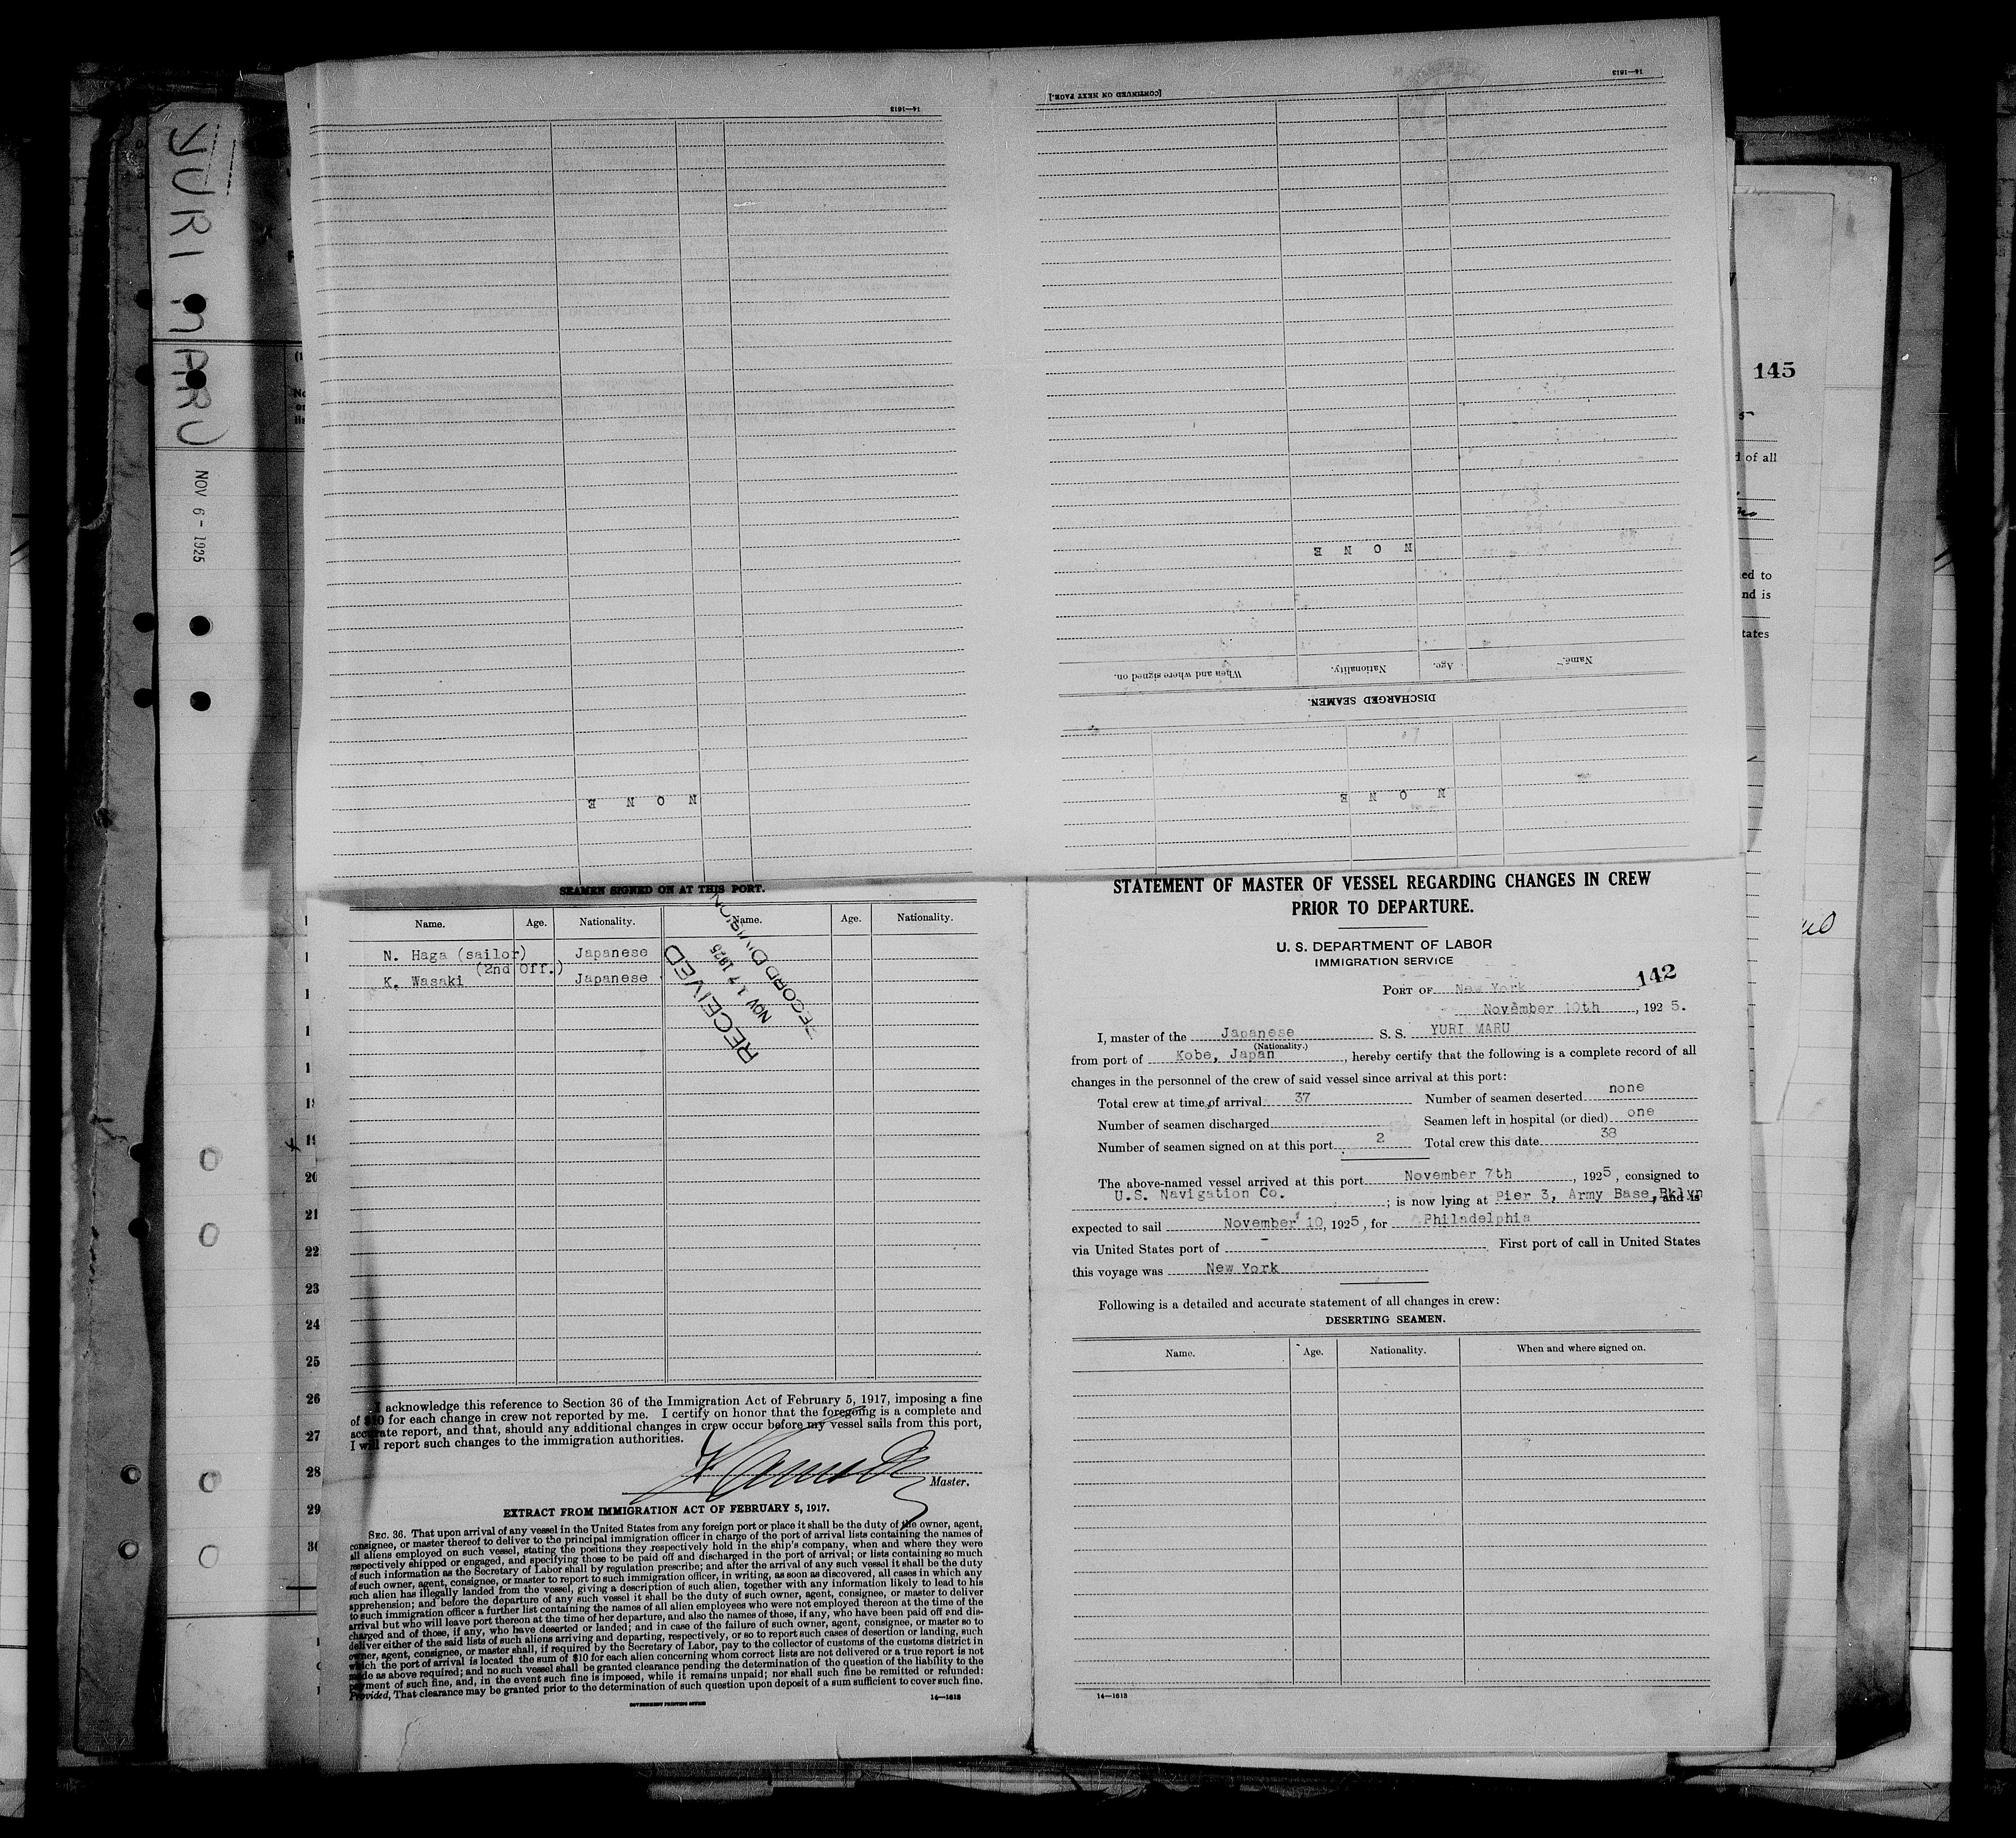 YURI MARU
NOV 6 - 1925
14—1613
[CONTINUED ON NEXT PAGE.]
14—1613
NONE
Name.
Age.
Nationality.
When and where signed on.
DISCHARGED SEAMEN.
NONE
NONE
145
d of all
ed to
nd is
tates
SEAMEN SIGNED ON AT THIS PORT.
Name. Age. Nationality. Name. Age. Nationality.
N. Haga (sailor) Japanese
(2nd Off.)
K. Wasaki Japanese
RECEIVED
NOV 17 1925
RECORD DIVISION
19
20
21
22
23
24
25
26
27
28
29
30
I acknowledge this reference to Section 36 of the Immigration Act of February 5, 1917, imposing a fine
of $10 for each change in crew not reported by me. I certify on honor that the foregoing is a complete and
accurate report, and that, should any additional changes in crew occur before my vessel sails from this port,
I will report such changes to the immigration authorities.
Master.
EXTRACT FROM IMMIGRATION ACT OF FEBRUARY 5, 1917.
SEC. 36. That upon arrival of any vessel in the United States from any foreign port or place it shall be the duty of the owner, agent,
consignee, or master thereof to deliver to the principal immigration officer in charge of the port of arrival lists containing the names of
all aliens employed on such vessel, stating the positions they respectively hold in the ship's company, when and where they were
respectively shipped or engaged, and specifying those to be paid off and discharged in the port of arrival; or lists containing so much
of such information as the Secretary of Labor shall by regulation prescribe; and after the arrival of any such vessel it shall be the duty
of such owner, agent, consignee, or master to report to such immigration officer, in writing, as soon as discovered, all cases in which any
such alien has illegally landed from the vessel, giving a description of such alien, together with any information likely to lead to his
apprehension; and before the departure of any such vessel it shall be the duty of such owner, agent, consignee, or master to deliver
to such immigration officer a further list containing the names of all alien employees who were not employed thereon at the time of the
arrival but who will leave port thereon at the time of her departure, and also the names of those, if any, who have been paid off and dis-
charged and of those, if any, who have deserted or landed; and in case of the failure of such owner, agent, consignee, or master so to
deliver either of the said lists of such aliens arriving and departing, respectively, or so to report such cases of desertion or landing, such
owner, agent, consignee, or master shall, if required by the Secretary of Labor, pay to the collector of customs of the customs district in
which the port of arrival is located the sum of $10 for each alien concerning whom correct lists are not delivered or a true report is not
made as above required; and no such vessel shall be granted clearance pending the determination of the question of the liability to the
payment of such fine, and, in the event such fine is imposed, while it remains unpaid; nor shall such fine be remitted or refunded:
Provided, That clearance may be granted prior to the determination of such question upon deposit of a sum sufficient to cover such fine.
GOVERNMENT PRINTING OFFICE 14—1613
STATEMENT OF MASTER OF VESSEL REGARDING CHANGES IN CREW
PRIOR TO DEPARTURE.
U. S. DEPARTMENT OF LABOR
IMMIGRATION SERVICE
142
PORT OF New York
November 10th, 1925.
I, master of the Japanese S. S. YURI MARU
(Nationality.)
from port of Kobe, Japan, hereby certify that the following is a complete record of all
changes in the personnel of the crew of said vessel since arrival at this port:
Total crew at time of arrival 37 Number of seamen deserted none
Number of seamen discharged Seamen left in hospital (or died) one
Number of seamen signed on at this port 2 Total crew this date 38
The above-named vessel arrived at this port November 7th, 1925, consigned to
U.S. Navigation Co.; is now lying at Pier 3, Army Base, Bklyn and is
expected to sail November 10, 1925, for Philadelphia
via United States port of - First port of call in United States
this voyage was New York
Following is a detailed and accurate statement of all changes in crew:
DESERTING SEAMEN.
Name. Age. Nationality. When and where signed on.
14—1613